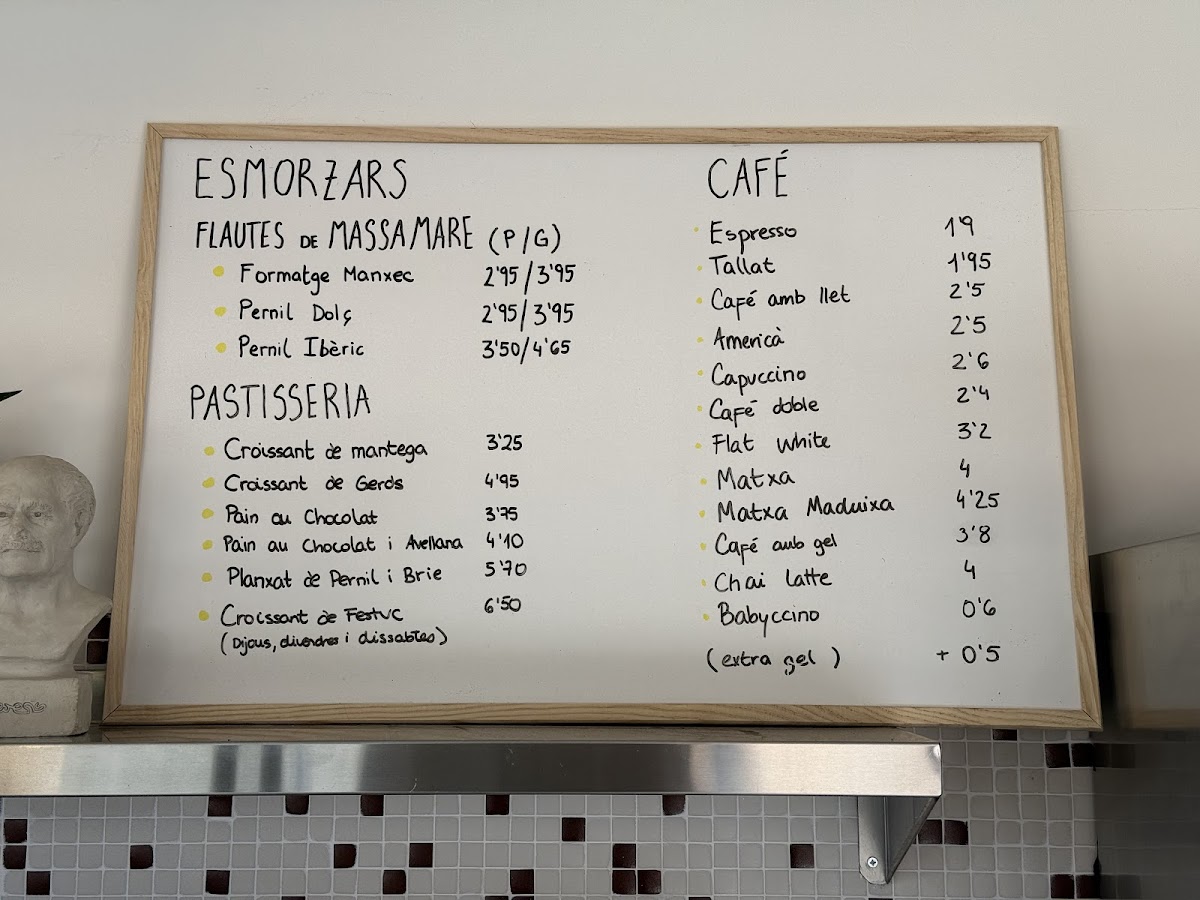 ESMORZARS
FLAUTES DE MASSA MARE (P/G)
Formatge Manxec 2'95/3'95
Pernil Dolç 2'95/3'95
Pernil Ibèric 3'50/4'65
PASTISSERIA
Croissant de mantega 3'25
Croissant de Gerds 4'95
Pain au Chocolat 3'75
Pain au Chocolat i Avellana 4'10
Planxat de Pernil i Brie 5'70
Croissant de Festuc 6'50
(Dijous, divendres i dissabtes)
CAFÉ
Espresso 1'9
Tallat 1'95
Café amb llet 2'5
Americà 2'5
Capuccino 2'6
Café doble 2'4
Flat white 3'2
Matxa 4
Matxa Maduixa 4'25
Café amb gel 3'8
Chai latte 4
Babyccino 0'6
(extra gel) + 0'5